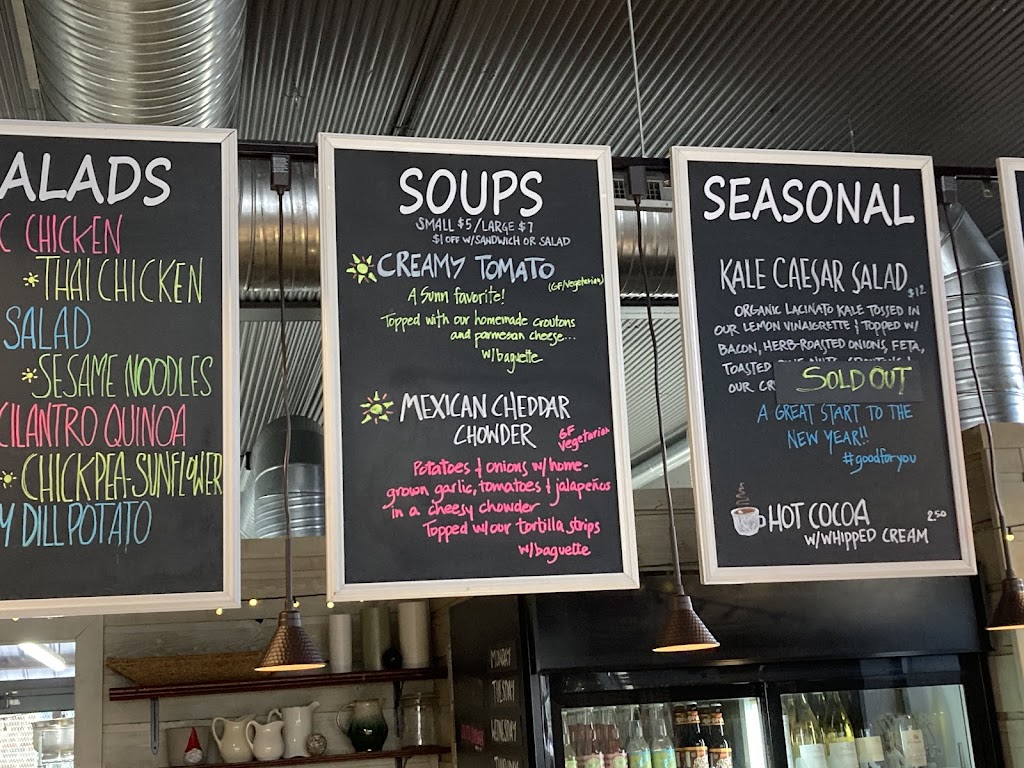 ALADS
C CHICKEN
THAI CHICKEN
SALAD
SESAME NOODLES
CILANTRO QUINOA
CHICKPEA-SUNFLOWER
Y DILL POTATO
SOUPS
SMALL $5/LARGE $7
$1 OFF W/SANDWICH OR SALAD
CREAMY TOMATO
(GF/Vegetarian)
A Sunn favorite!
Topped with our homemade croutons
and parmesan cheese...
w/baguette
MEXICAN CHEDDAR
CHOWDER
GF
Vegetarian
Potatoes & onions w/ home-
grown garlic, tomatoes & jalapeños
in a cheesy chowder
Topped w/our tortilla strips
w/baguette
SEASONAL
KALE CAESAR SALAD $12
ORGANIC LACINATO KALE TOSSED IN
OUR LEMON VINAIGRETTE & TOPPED W/
BACON, HERB-ROASTED ONIONS, FETA,
TOASTED
OUR
SOLD OUT
A GREAT START TO THE
NEW YEAR!!
#goodforyou
HOT COCOA 2.50
W/WHIPPED CREAM
MONDAY
TUESDAY
WEDNESDAY